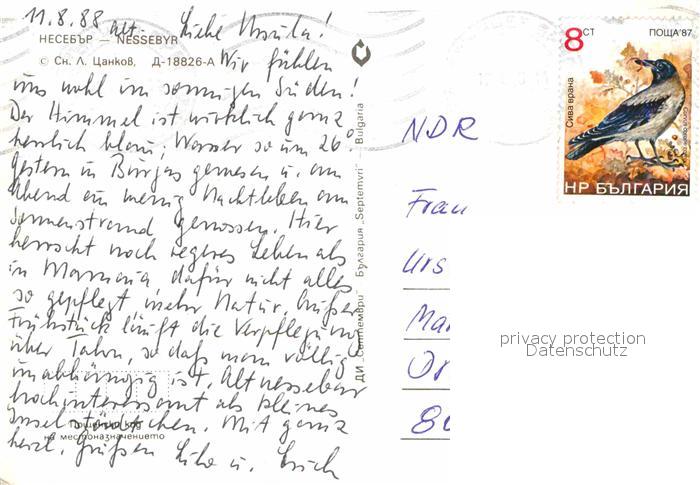 11.8.88
Liebe Ursula!
НЕСЕБЪР — NESSEBYR
© Сн. Л. Цанков, Д-18826-А
Wir fühlen
uns wohl im sonnigen Süden!
Der Himmel ist wirklich ganz
herrlich blau, Wasser so um 26°.
Gestern in Burgas gewesen u. am
Abend ein wenig Nachtleben am
Sonnenstrand genossen. Hier
herrscht noch regeres Leben als
in Mamaia, dafür nicht alles
so gepflegt, mehr Natur. Außer
Frühstück läuft die Verpflegung
über Talon, so daß man völlig
unabhängig ist. Altnessebar
hochinteressant als kleines
Inselstädtchen. Mit ganz
herzl. Grüßen
Пощенски код
на местоназначението
ДИ „Септември“ България „Septemvri“ — Bulgaria
8СТ ПОЩА'87
Сива врана
НР БЪЛГАРИЯ
NDR
Frau
Urs
Mar
Or
80
privacy protection
Datenschutz